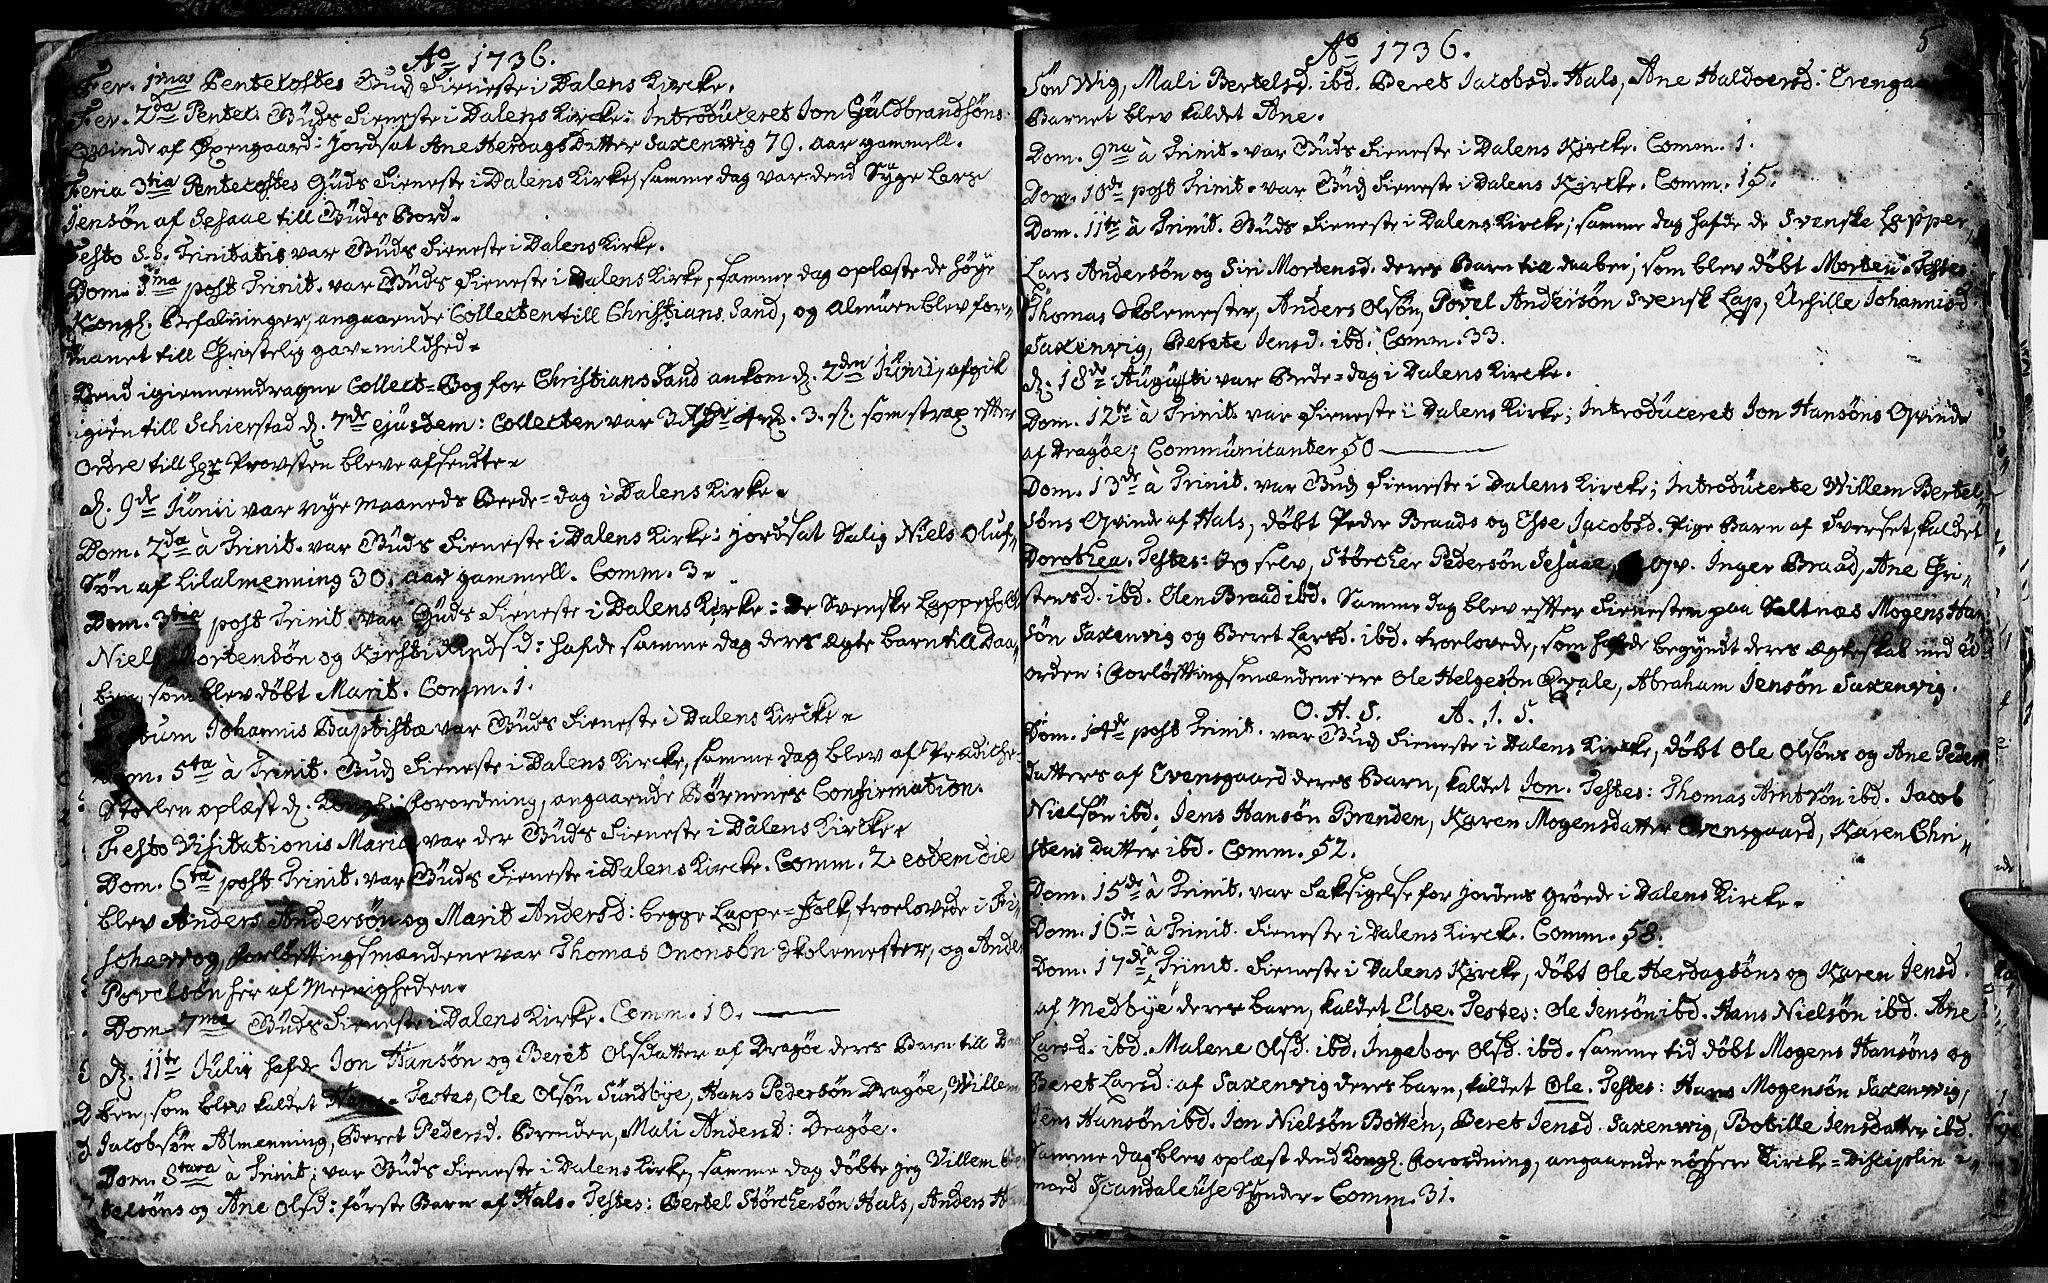 Ao 1736.
Fer. 1ma Pentecostes Guds Tieneste i Dalens Kircke.
Fer. 2da Pentec. Guds Tieneste i Dalens Kircke: Introduceret Jon Guldbrandsøns
Qvinde af Øxengaard: jordsat Ane Herdags Datter Saxenvig 79. aar gammell.
Feria 3tia Pentecostes Guds Tieneste i Dalens Kirke, samme dag var dend Syge Lars
Jensøn af Sesaae till Guds Bord.
Festo S.S. Trinitatis var Guds Tieneste i Dalens Kirke.
Dom. 1ma post Trinit. var Guds Tieneste i Dalens Kirke, samme dag oplæste de høye
Kongl. Befalninger, angaaende Collecten till Christians Sand, og Almuen blev for-
manet till Christelig gav-mildhed.
Dend igiennemdragne Collect-Bog for Christians Sand ankom d. 2den Junii, afgik
igien till Schierstad d. 7de ejusdem: Collecten var 3 Rdr 4 . 3. s. som strax efter
Ordre till her Provsten bleve afsendte.
d. 9de Junii var nye Maaneds Beede-dag i Dalens Kirke.
Dom. 2da à Trinit. var Guds Tieneste i Dalens Kirke: jordsat Salig Niels Oluf-
Søn af Lilalmenning 30. aar gammell. Comm. 3.
Dom. 3tia post Trinit. var Guds Tieneste i Dalens Kirke: De Svenske Lappefolk
Niels Mortensøn og Kirsti Andsd: hafde samme dag deres ægte barn till Daa-
ben, som blev døbt Marit. Comm. 1.
Festum Johannis Baptistæ var Guds Tieneste i Dalens Kircke.
Dom. 5ta à Trinit. Guds Tieneste i Dalens Kircke, samme dag blev af Prædicke-
Stoelen oplæst d. Kongl. Forordning, angaaende Børnenes Confirmation.
Festo Visitationis Mariæ var der Guds Tieneste i Dalens Kircke.
Dom. 6ta post Trinit. var Guds Tieneste i Dalens Kircke. Comm. 2. eodem die
blev Anders Andersøn og Marit Andersd: begge Lappe-Folk, troelovede i Fi-
scherrog, forløftingsmændene var Thomas Ononsøn Skolemester, og Anders
Povelsøn her af Meenigheden.
Dom. 7ma Guds Tieneste i Dalens Kirke. Comm. 10.
d. 11te Julii hafde Jon Hansøn og Beret Olsdatter af Dragøe deres Barn till Daa-
ben, som blev kaldet Hans. Testes, Ole Olsøn Sundbye, Hans Pedersøn Dragøe, Willem
Jacobsøn Almenning, Beret Pedersd. Brenden, Mali Andersd: Dragøe.
Dom. 8tava à Trinit; var Guds Tieneste i Dalens Kirke, samme dag døbte jeg Villem Ber-
telsøns og Ane Olsd: første Barn af Hals. Testes: Bertel Størchersøn Hals, Anders Han
Ao 1736.
5
Søn Wig, Mali Bertelsd. ibd. Beret Jacobsd. Hals, Ane Haldoersd: Evengaard
Barnet blev kaldet Ane.
Dom. 9na à Trinit. var Guds Tieneste i Dalens Kircke. Comm. 1.
Dom. 10de post Trinit. var Guds Tieneste i Dalens Kircke. Comm. 15.
Dom. 11te à Trinit. Guds Tieneste i Dalens Kircke; samme dag hafde de Svenske Lapper,
Lars Andersøn og Siri Mortensd. deres Barn till daaben, som blev døbt Morten. Testes
Thomas Skolemester, Anders Olsøn, Povel Andersøn Svensk Lap, Arhille Johannisd.
Saxenvig, Berete Jensd. ibd. Comm. 33.
d. 18de Augusti var Bede-dag i Dalens Kircke.
Dom. 12te à Trinit. var Tieneste i Dalens Kirke; Introduceret Jon Hansøns Qvinde
af Dragøe; Communicanter 50
Dom. 13de à Trinit. var Guds Tieneste i Dalens Kircke; Introducerte Willem Bertel-
søns Qvinde af Hals, døbt Peder Braads og Else Jacobsd. Pige Barn af Sverset, kaldet
Dorothea. Testes: Jeg selv, Størcher Pedersøn Sesaae, Inger Braad, Ane Chri-
stensd. ibd. Elen Braad ibd. Samme dag blev efter Tienesten paa Saltnæs Mogens Han-
søn Saxenvig og Beret Larsd. ibd. troelovede, som hafde begyndt deres Ægteskab med U-
orden: Forløftingsmændene ere Ole Helgesøn Qvale, Abraham Jensøn Saxenvig.
O. H. S. A. I. S.
Dom. 14de post Trinit. var Guds Tieneste i Dalens Kircke, døbt Ole Olsøns og Ane Peders-
datters af Evensgaard deres Barn, kaldet Jon. Testes: Thomas Arntsøn ibd. Jacob
Nielsøn ibd. Jens Hansøn Brenden, Karen Mogensdatter Evensgaard, Karen Chri-
stens Datter ibd. Comm. 52.
Dom. 15de à Trinit. var Taksigelse for jordens Grøde i Dalens Kircke.
Dom. 16de à Trinit. Tieneste i Dalens Kircke. Comm. 58.
Dom. 17de à Trinit. Tieneste i Dalens Kircke, døbt Ole Herdagsøns og Karen Jensd.
af Medbye deres barn, kaldet Else. Testes: Ole Jensøn ibd. Hans Nielsøn ibd. Ane
Larsd. ibd. Malene Olsd. ibd. Ingebor Olsd. ibd. samme tid døbt Mogens Hansøns og
Beret Larsd: af Saxenvig deres barn, kaldet Ole. Testes: Hans Mogensøn Saxenvig,
Jens Hansøn ibd. Jon Nielsøn Botten, Beret Jensd. Saxenvig, Botille Jensdatter ibd.
Samme dag blev oplæst dend Kongl. Forordning, angaaende nøyere Kircke-Disciplin i-
mod Scandaleuse Synder. Comm. 31.